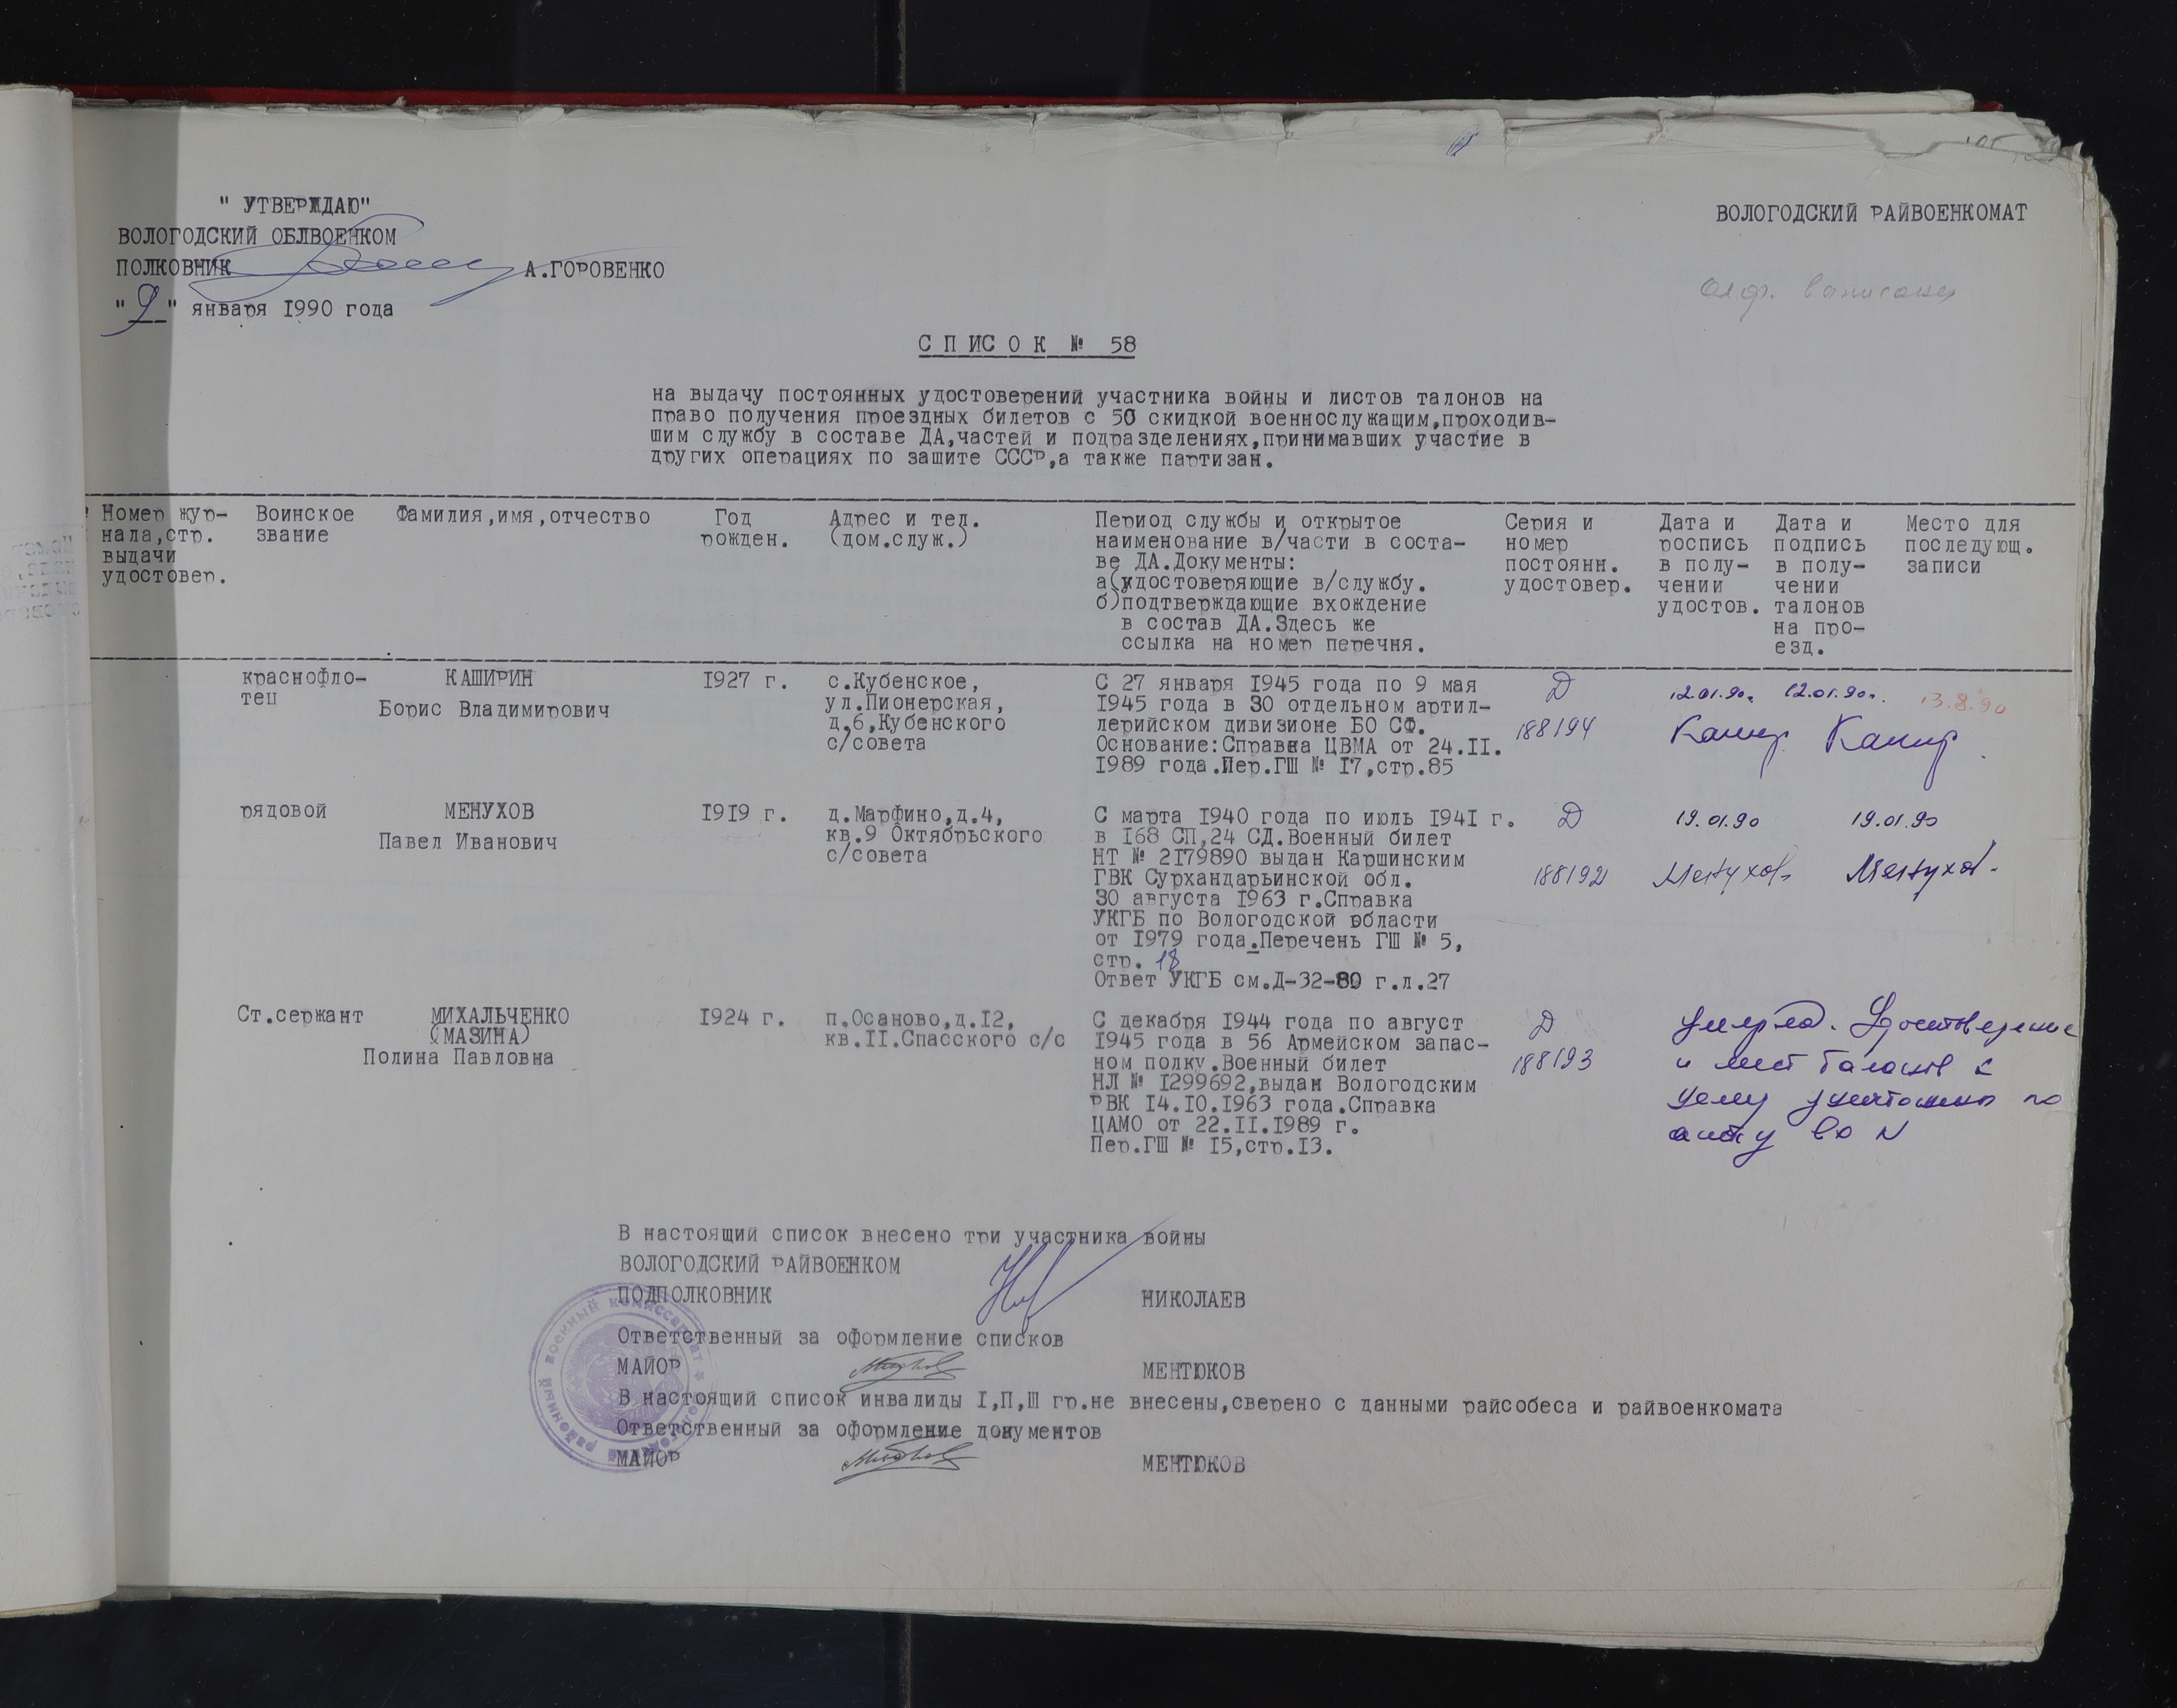 " УТВЕРЖДАЮ"
ВОЛОГОДСКИЙ ОБЛВОЕНКОМ
ПОЛКОВНИК А.ГОРОВЕНКО
"9" января 1990 года
ВОЛОГОДСКИЙ РАЙВОЕНКОМАТ
СПИСОК № 58
на выдачу постоянных удостоверений участника войны и листов талонов на
право получения проездных билетов с 50 скидкой военнослужащим,проходив-
шим службу в составе ДА,частей и подразделениях,принимавших участие в
других операциях по защите СССР,а также партизан.
Номер жур-
нала,стр.
выдачи
удостовер.
Воинское
звание
Фамилия,имя,отчество
Год
рожден.
Адрес и тел.
(дом.служ.)
Период службы и открытое
наименование в/части в соста-
ве ДА.Документы:
а(удостоверяющие в/службу.
б)подтверждающие вхождение
в состав ДА.Здесь же
ссылка на номер перечня.
Серия и
номер
постоянн.
удостовер.
Дата и
роспись
в полу-
чении
удостов.
Дата и
подпись
в полу-
чении
талонов
на про-
езд.
Место для
последующ.
записи
краснофло-
тец
КАШИРИН
Борис Владимирович
1927 г.
с.Кубенское,
ул.Пионерская,
д.6,Кубенского
с/совета
С 27 января 1945 года по 9 мая
1945 года в 30 отдельном артил-
лерийском дивизионе БО СФ.
Основание:Справка ЦВМА от 24.II.
1989 года.Пер.ГШ № 17,стр.85
Д
188194
12.01.90г. 12.01.90г.
13.8.90
рядовой
МЕНУХОВ
Павел Иванович
1919 г.
д.Марфино,д.4,
кв.9 Октябрьского
с/совета
С марта 1940 года по июль 1941 г.
в 168 СП,24 СД.Военный билет
НТ № 2179890 выдан Каршинским
ГВК Сурхандарьинской обл.
30 августа 1963 г.Справка
УКГБ по Вологодской области
от 1979 года.Перечень ГШ № 5,
стр. 18
Ответ УКГБ см.Д-32-80 г.л.27
Д
188192
19.01.90 19.01.90
Менухов Менухов
Ст.сержант
МИХАЛЬЧЕНКО
(МАЗИНА)
Полина Павловна
1924 г.
п.Осаново,д.12,
кв.II.Спасского с/с
С декабря 1944 года по август
1945 года в 56 Армейском запас-
ном полку.Военный билет
НЛ № 1299692,выдан Вологодским
РВК 14.10.1963 года.Справка
ЦАМО от 22.II.1989 г.
Пер.ГШ № 15,стр.13.
Д
188193
Умерла. Удостоверение
и лист талонов к
нему уничтожен по
акту
В настоящий список внесено три участника войны
ВОЛОГОДСКИЙ РАЙВОЕНКОМ
ПОДПОЛКОВНИК НИКОЛАЕВ
Ответственный за оформление списков
МАЙОР МЕНТЮКОВ
В настоящий список инвалиды I,П,Ш гр.не внесены,сверено с данными райсобеса и райвоенкомата
Ответственный за оформление документов
МАЙОР МЕНТЮКОВ
районный военный комиссариат